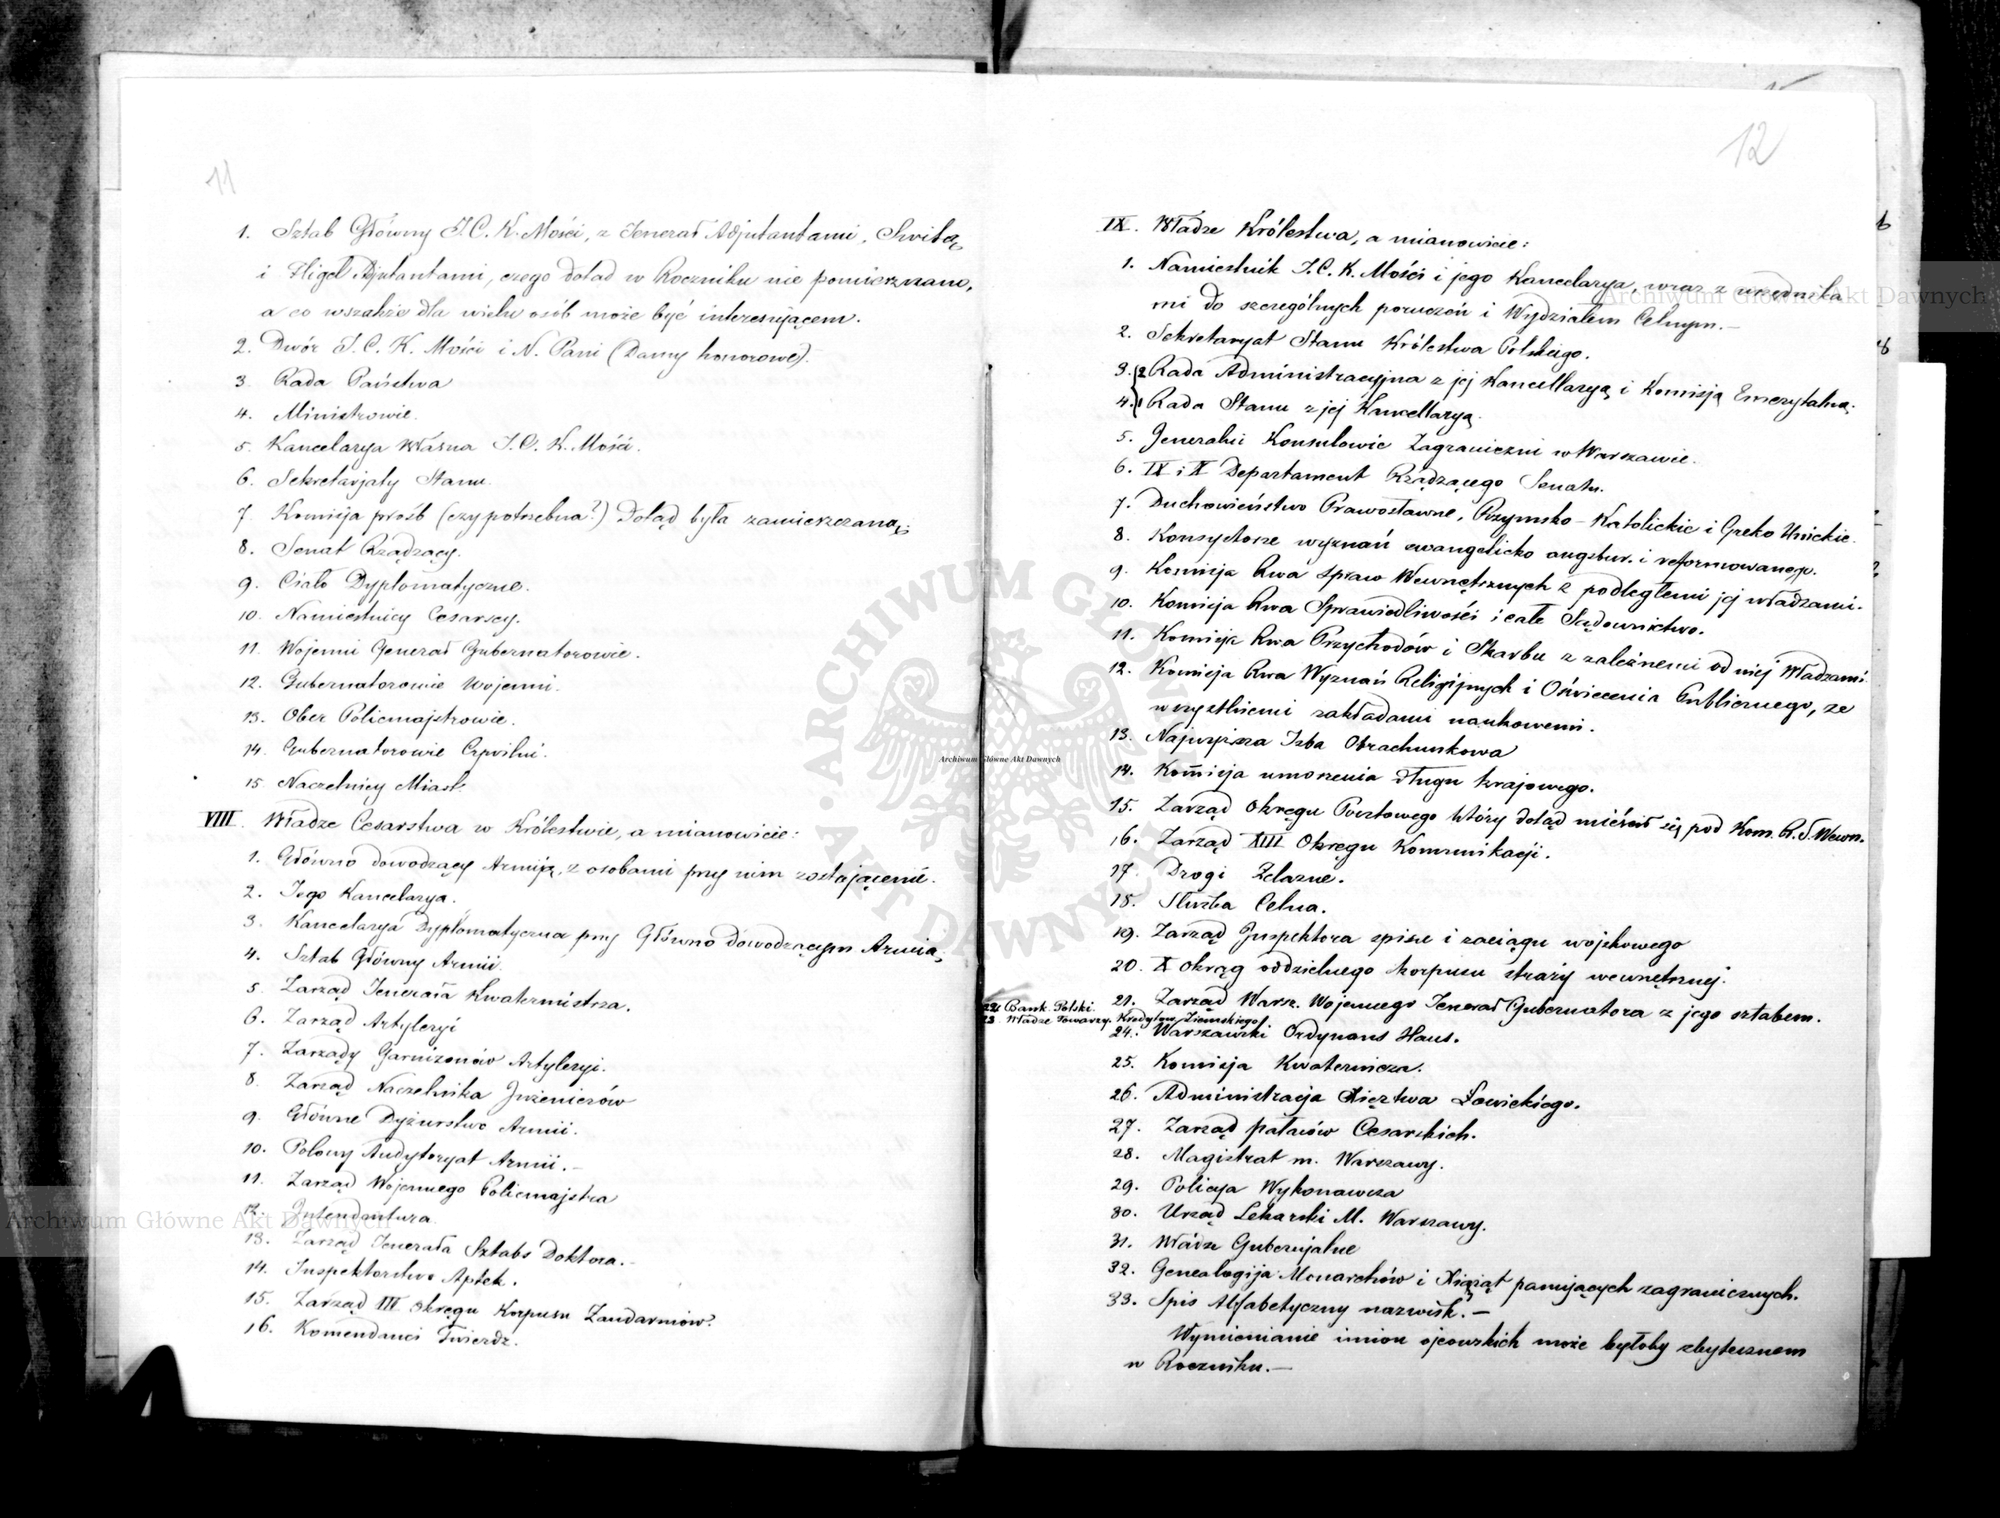 11
1. Sztab Główny J.C.K.Mości, z Jenerał Adjutantami, Switą,
i Fligel Adjutantami, czego dotąd w Roczniku nie pomieszczano,
a co wszakże dla wielu osób może być interesującem.
2. Dwór J.C.K. Mości i N. Pani (Damy honorowe).
3. Rada Państwa
4. Ministrowie.
5. Kancelarya Własna J.C.K.Mości.
6. Sekretarjaty Stanu
7. Komisija próśb (czy potrzebna?) Dotąd była zamieszczaną.
8. Senat Rządzący.
9. Ciało Dyplomatyczne.
10. Namiestnicy Cesarscy.
11. Wojenni Generał Gubernatorowie.
12. Gubernatorowie Wojenni.
13. Ober Policmajstrowie.
14. Gubernatorowie Cywilni.
15. Naczelnicy Miast
VIII. Władze Cesarstwa w Królestwie, a mianowicie:
1. Główno dowodzący Armiją, z osobami przy nim zostającemi.
2. Jego Kancelarya.
3. Kancelarya Dyplomatyczna przy Główno dowodzącym Armią.
4. Sztab Główny Armii.
5. Zarząd Jenerała Kwatermistrza.
6. Zarząd Artyleryi
7. Zarządy Garnizonów Artyleryi.
8. Zarząd Naczelnika Jnżenierów
9. Główne Dyżurstwo Armii.
10. Polowy Audytoryat Armii.-
11. Zarząd Wojennego Policmajstra
12. Jntendentura.
13. Zarząd Jenerała Sztabs Doktora.-
14. Inspektorstwo Aptek.
15. Zarząd III Okręgu Korpusu Żandarmów.
16. Komendanci Twierdz.
12
IX. Władze Królestwa, a mianowicie:
1. Namiestnik J.C.K. Mości i jego Kancelarya, wraz z urzędnika
mi do szczególnych poruczeń i Wydziałem Celnym.-
2. Sekretaryat Stanu Królestwa Polskiego.
3.(2 Rada Administracyjna z jej Kancellaryą i Komisją Emerytalną.
4.(1 Rada Stanu z jej Kancellaryą.
5. Jeneralni Konsulowie Zagraniczni w Warszawie.
6. IX i X Departament Rządzącego Senatu.
7. Duchowieństwo Prawosławne, Rzymsko-Katolickie i Greko Unickie.
8. Konsystorze wyznań ewangelicko augsbur. i reformowanego.
9. Komisija Rwa Spraw Wewnętrznych z podległemi jej władzami.
10. Komisija Rwa Sprawiedliwości i całe Sądownictwo.
11. Komisija Rwa Przychodów i Skarbu z zależnemi od niej Władzami.
12. Komisija Rwa Wyznań Religijnych i Oświecenia Publicznego, ze
wszystkiemi zakładami naukowemi.
13. Najwyższa Izba Obrachunkowa
14. Komisija umorzenia długu krajowego.
15. Zarząd Okręgu Pocztowego który dotąd mieścił się pod Kom. R.S.Wewn.
16. Zarząd XIII Okręgu Komunikacji.
17. Drogi Żelazne.
18. Służba Celna.
19. Zarząd Jnspektora spisu i zaciągu wojskowego
20. X Okrąg oddzielnego korpusu straży wewnętrznej.
21. Zarząd Warsz. Wojennego Jenerał Gubernatora z jego sztabem.
22. Bank Polski.
23. Władze Towarzy. Kredytow. Ziemskiego.
24. Warszawski Ordynans Haus.
25. Komisija Kwaternicza.
26. Administracja Xięztwa Łowickiego.
27. Zarząd pałaców Cesarskich.
28. Magistrat m. Warszawy.
29. Policya Wykonawcza
30. Urząd Lekarski M. Warszawy.
31. Władze Gubernjalne
32. Genealogija Monarchów i Xiążąt panujących zagranicznych.
33. Spis Alfabetyczny nazwisk.-
Wymienianie imion ojcowskich może byłoby zbytecznem
w Roczniku.-
Archiwum Główne Akt Dawnych
Archiwum Główne Akt Dawnych
Archiwum Główne Akt Dawnych
ARCHIWUM GŁÓWNE AKT DAWNYCH